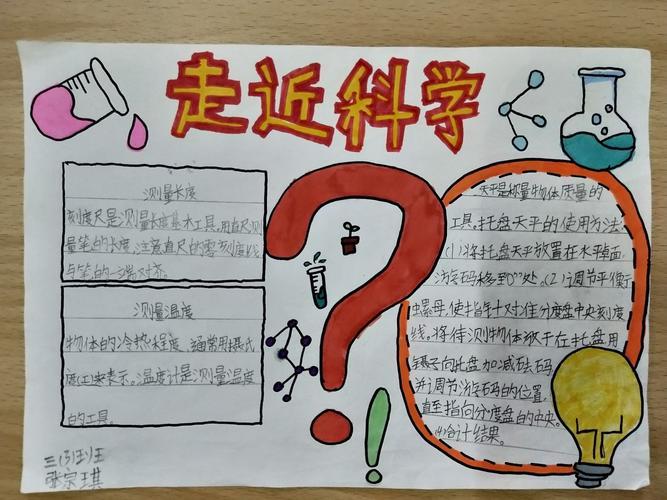 走近科学
测量长度
刻度尺是测量长度基本工具,用直尺测
量笔的长度,注意直尺的零刻度线
与笔的一端对齐。
测量温度
物体的冷热程度,通常用摄氏
度()来表示。温度计是测量温度
的工具。
天平是称量物体质量的
工具,托盘天平的使用方法:
(1)将托盘天平放置在水平面,
游码移到"0"处。(2)调节平衡
螺母,使指针对准分度盘中央刻度
线。将待测物体放于左托盘用
镊子向右盘加减砝码
并调节游码的位置,
直至指向分度盘的中央。
计结果。
三(3)班
张宗琪